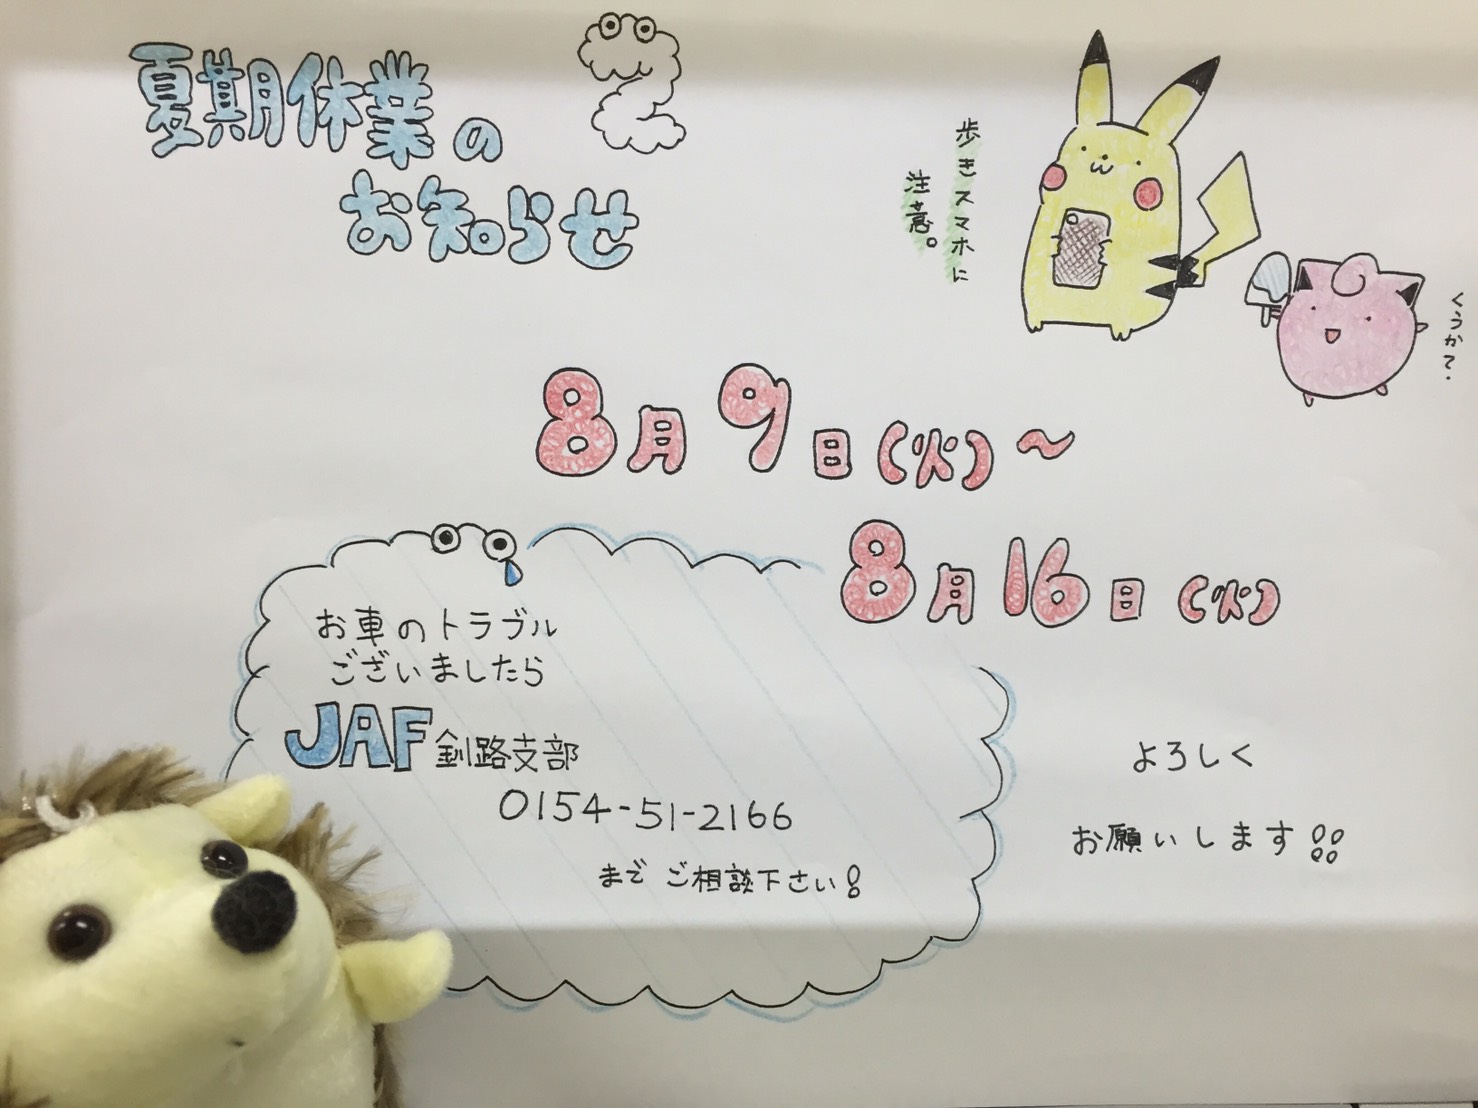 夏期休業の
お知らせ
歩きスマホに
注意。
くうかて.
8月9日(火)～
8月16日(火)
お車のトラブル
ございましたら
JAF釧路支部
0154-51-2166
まで ご相談下さい!
よろしく
お願いします!!